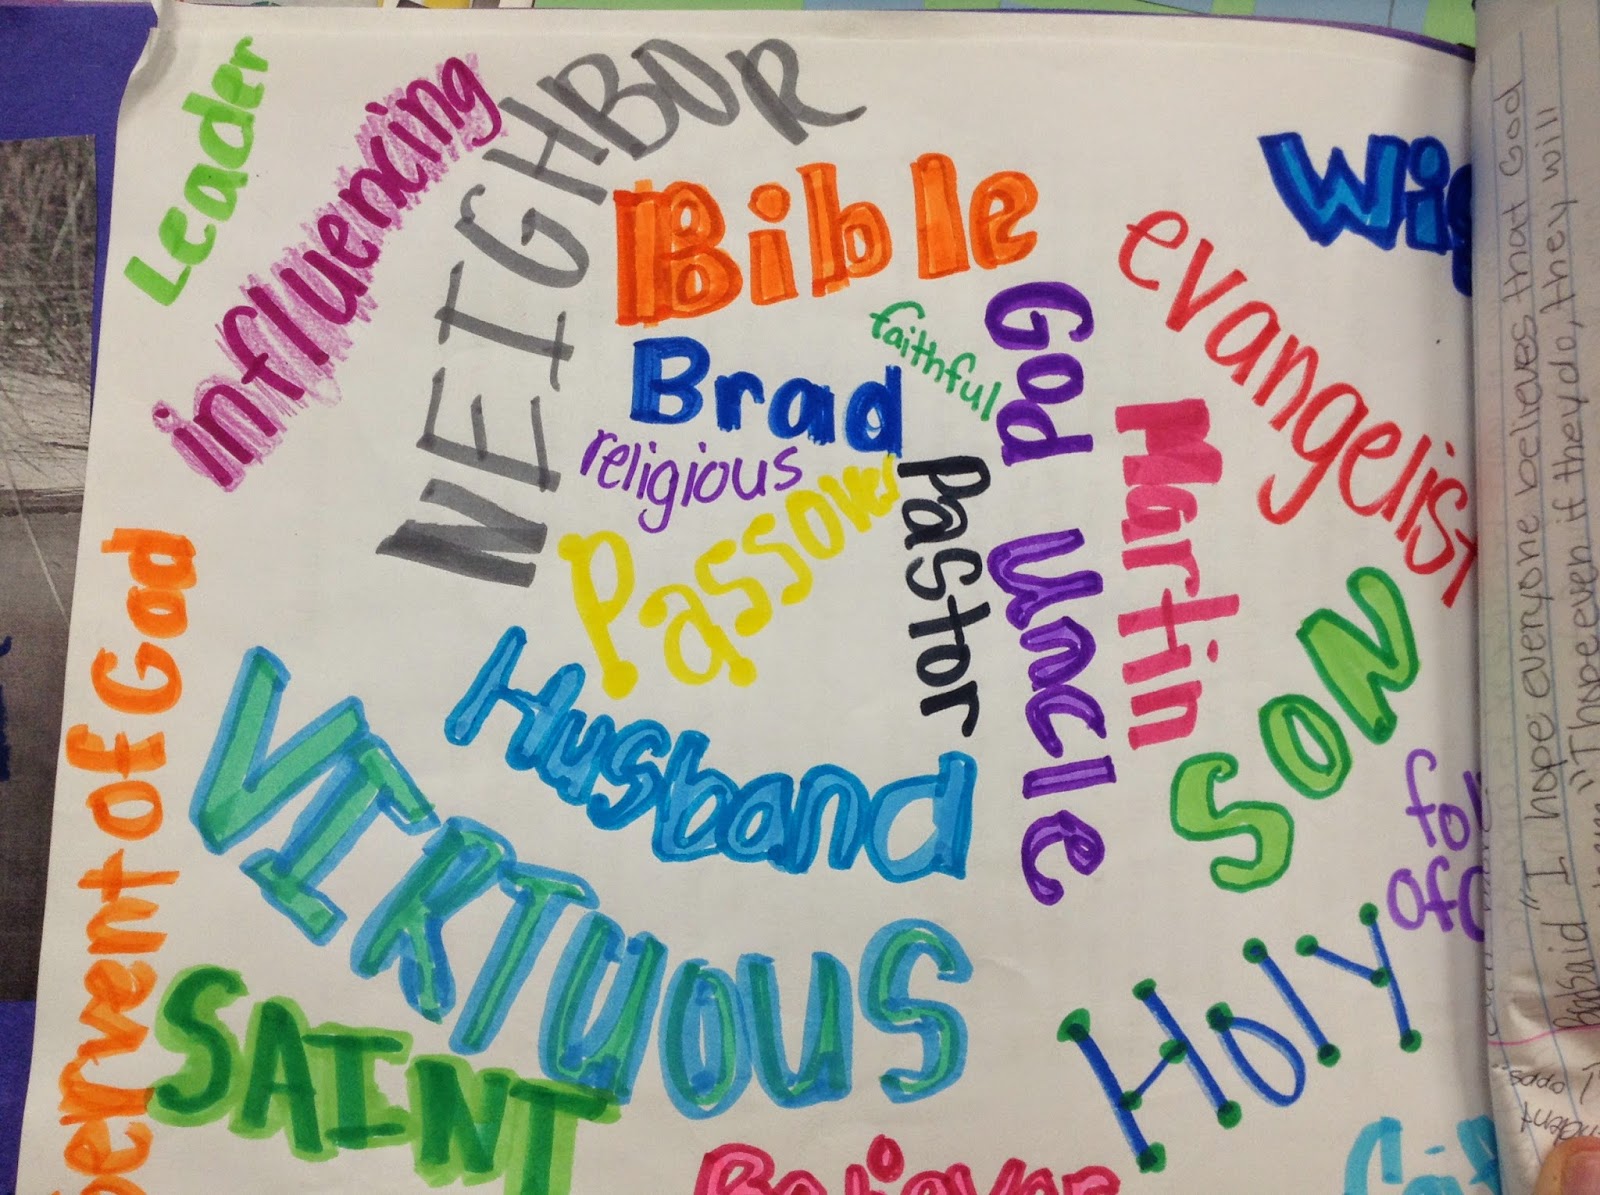 Leader
influencing
NEIGHBOR
Bible
faithful
God Uncle
evangelist
Wi
Brad
religious
Passover
Pastor
Martin
Son
Husband
VIRTUOUS
Servent of God
SAINT
Holy
fol
of
Believer
"I hope everyone believes that God
said "I hope even if they do, they will
oops